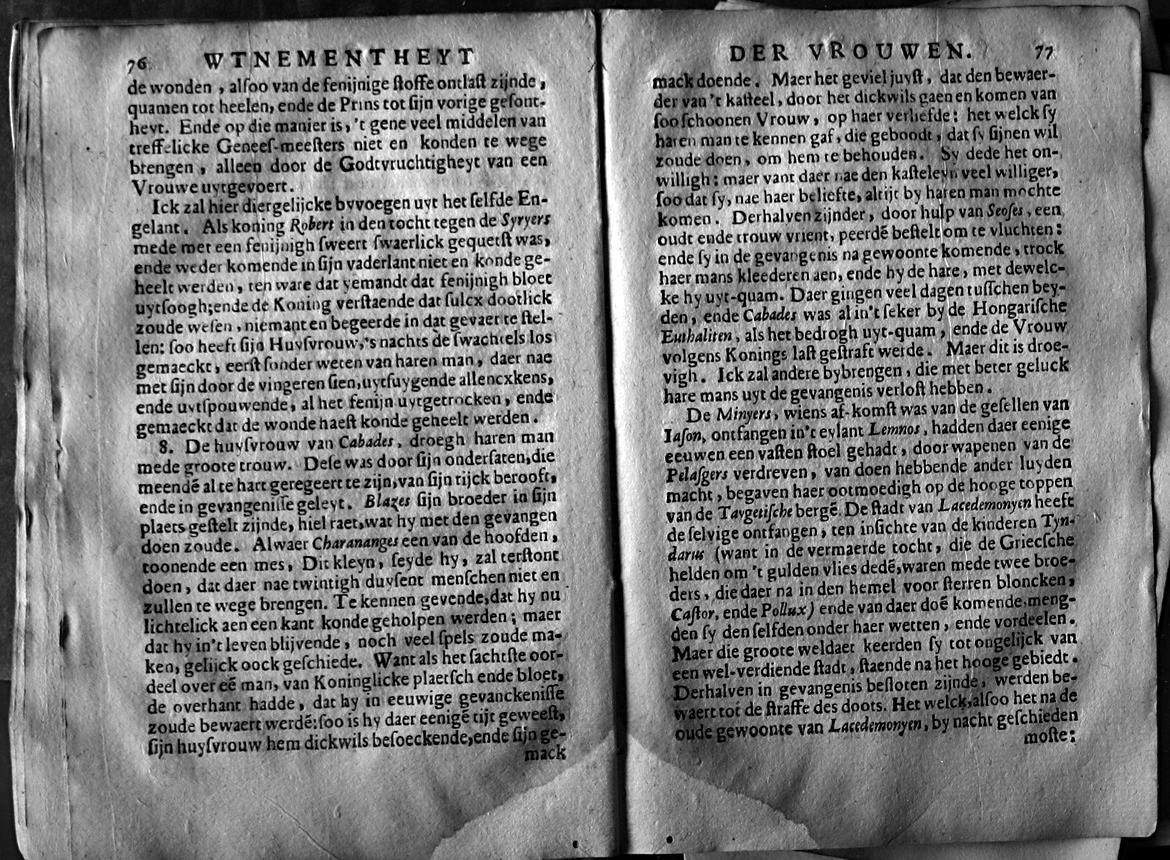 76 WTNEMENTHEYT
de wonden , alſoo van de fenijnige ſtoffe ontlaſt zijnde ,
quamen tot heelen, ende de Prins tot ſijn vorige geſont-
heyt. Ende op die manier is, 't gene veel middelen van
treffelicke Geneeſ-meeſters niet en konden te wege
brengen , alleen door de Godtvruchtigheyt van een
Vrouwe uytgevoert.
Ick zal hier diergelijcke byvoegen uyt het ſelfde En-
gelant. Als koning Robert in den tocht tegen de Syryers
mede met een fenijnigh ſweert ſwaerlick gequetſt was,
ende weder komende in ſijn vaderlant niet en konde ge-
heelt werden , ten ware dat yemandt dat fenijnigh bloet
uytſoogh; ende de Koning verſtaende dat ſulcx dootlick
zoude weſen , niemant en begeerde in dat gevaer te ſtel-
len: ſoo heeft ſijn Huyſvrouw, 's nachts de ſwachtels los
gemaeckt, eerſt ſonder weten van haren man , daer nae
met ſijn door de vingeren ſien, uytſuygende allencxkens,
ende uytſpouwende, al het fenijn uytgetrocken, ende
gemaeckt dat de wonde haeſt konde geheelt werden .
8. De huyſvrouw van Cabades, droegh haren man
mede groote trouw. Deſe was door ſijn onderſaten, die
meendē al te hart geregeert te zijn, van ſijn rijck berooft,
ende in gevangeniſſe geleyt. Blazes ſijn broeder in ſijn
plaets geſtelt zijnde, hiel raet, wat hy met den gevangen
doen zoude. Alwaer Charananges een van de hoofden ,
toonende een mes, Dit kleyn, ſeyde hy, zal terſtont
doen, dat daer nae twintigh duyſent menſchen niet en
zullen te wege brengen. Te kennen gevende, dat hy nu
lichtelick aen een kant konde geholpen werden ; maer
dat hy in't leven blijvende , noch veel ſpels zoude ma-
ken, gelijck oock geſchiede. Want als het ſachtſte oor-
deel over eē man, van Koninglicke plaetſch ende bloet,
de overhant hadde, dat hy in eeuwige gevanckeniſſe
zoude bewaert werdē: ſoo is hy daer eenige tijt geweeſt,
ſijn huyſvrouw hem dickwils beſoeckende, ende ſijn ge-
mack
DER VROUWEN. 77
mack doende. Maer het geviel juyſt , dat den bewaer-
der van 't kaſteel, door het dickwils gaen en komen van
ſoo ſchoonen Vrouw, op haer verliefde: het welck ſy
haren man te kennen gaf, die geboodt, dat ſy ſijnen wil
zoude doen, om hem te behouden. Sy dede het on-
willigh: maer vant daer nae den kaſteleyn veel williger,
ſoo dat ſy, nae haer beliefte, altijt by haren man mochte
komen. Derhalven zijnder, door hulp van Seoſes, een
oudt ende trouw vrient, peerdē beſtelt om te vluchten:
ende ſy in de gevangenis na gewoonte komende, trock
haer mans kleederen aen, ende hy de hare, met dewelc-
ke hy uyt-quam. Daer gingen veel dagen tuſſchen bey-
den, ende Cabades was al in't ſeker by de Hongariſche
Euthaliten, als het bedrogh uyt-quam, ende de Vrouw
volgens Konings laſt geſtraft werde. Maer dit is droe-
vigh. Ick zal andere bybrengen, die met beter geluck
hare mans uyt de gevangenis verloſt hebben.
De Minyers, wiens af-komſt was van de geſellen van
Iaſon, ontfangen in't eylant Lemnos, hadden daer eenige
eeuwen een vaſten ſtoel gehadt, door wapenen van de
Pelaſgers verdreven, van doen hebbende ander luyden
macht, begaven haer ootmoedigh op de hooge toppen
van de Taygetiſche bergē. De ſtadt van Lacedemonyen heeft
de ſelvige ontfangen, ten inſichte van de kinderen Tyn-
darus (want in de vermaerde tocht, die de Griecſche
helden om 't gulden vlies dedē, waren mede twee broe-
ders, die daer na in den hemel voor ſterren bloncken,
Caſtor, ende Pollux) ende van daer doē komende, meng-
den ſy den ſelfden onder haer wetten, ende vordeelen.
Maer die groote weldaet keerden ſy tot ongelijck van
een wel-verdiende ſtadt, ſtaende na het hooge gebiedt.
Derhalven in gevangenis beſloten zijnde, werden be-
waert tot de ſtraffe des doots. Het welck, alſoo het na de
oude gewoonte van Lacedemonyen, by nacht geſchieden
moſte: